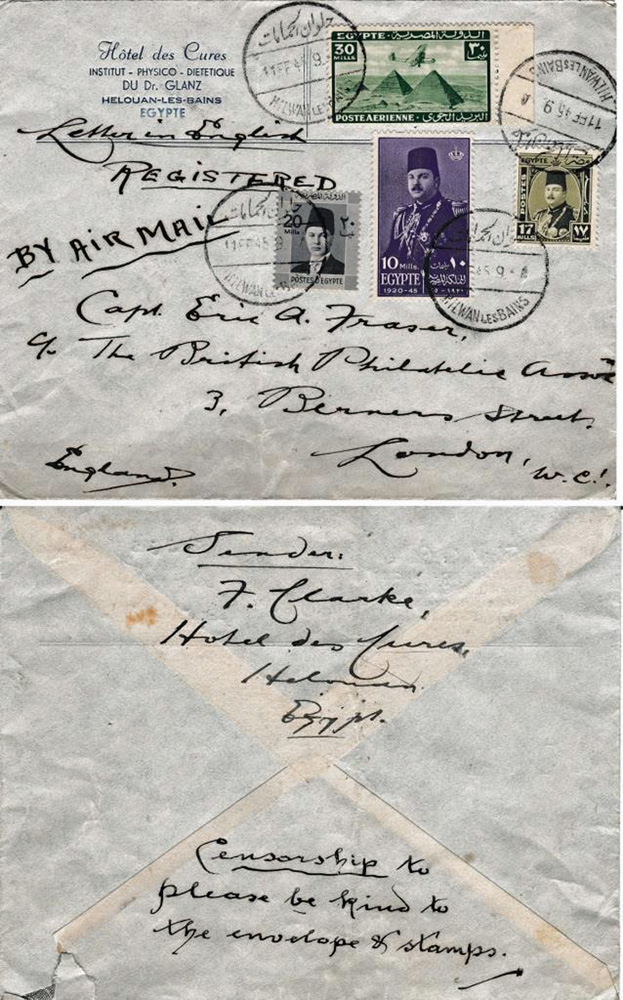 Hôtel des Cures
INSTITUT - PHYSICO - DIETETIQUE
DU Dr. GLANZ
HELOUAN-LES-BAINS
EGYPTE
حلوان الحمامات
11 FE 45 9
HELWAN LES BAINS
EGYPTE الدولة المصرية
30 MILLS ٣٠
POSTE AERIENNE البريد الجوى
HELWAN LES BAINS
11 FE 45 9
Letter in English
REGISTERED
BY AIR MAIL
20 Mills ٢٠
POSTES D'EGYPTE
حلوان الحمامات
11 FE 45 9
10 Mills. ١٠
EGYPTE
1920-45
EGYPTE
POSTES
17 MILLS ١٧
HELWAN LES BAINS
Capt. Eric A. Fraser,
c/o The British Philatelic Assoc
3, Berners Street,
London, W.C.1.
England.
Sender:
F. Clarke,
Hotel des Cures,
Helouan
Egypt.
Censorship to
please be kind to
the envelope & stamps.